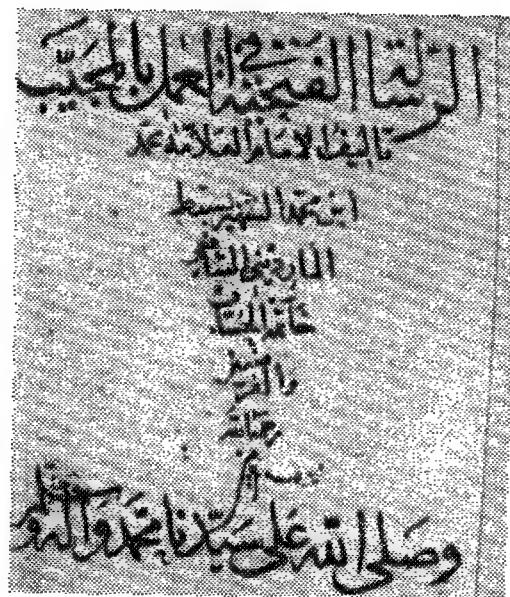 الرسالة الفتحية في العمل بالمجيّب
تأليف الامام العلامة محمد
ابن محمد الشهير بسبط
المارديني الشافعي
خاتمة الحساب
رحمه الله
وصلى الله على سيّدنا محمد وآله